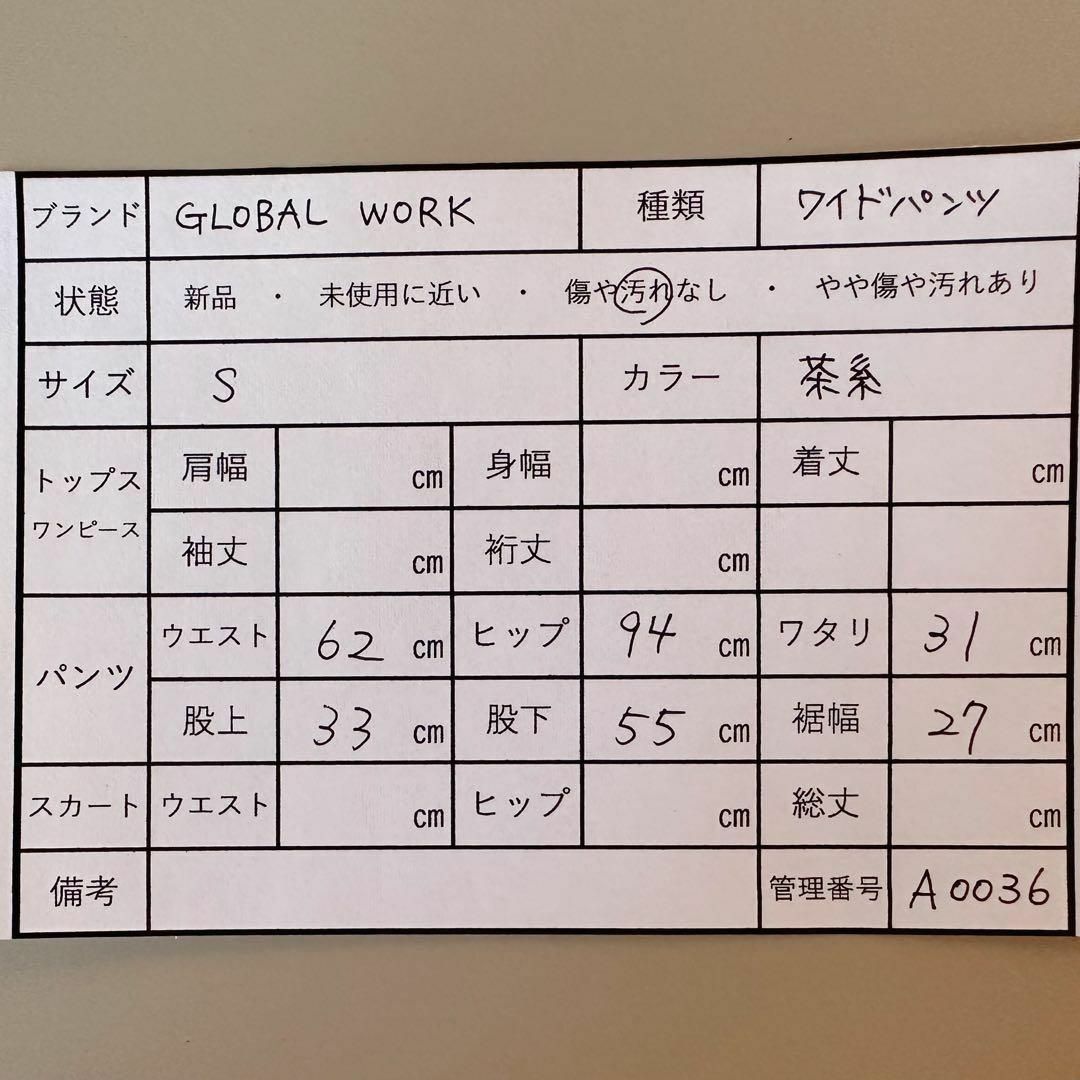 ブランド GLOBAL WORK 種類 ワイドパンツ
状態 新品 ・ 未使用に近い ・ 傷や汚れなし ・ やや傷や汚れあり
サイズ S カラー 茶系
トップス ワンピース
肩幅 cm 身幅 cm 着丈 cm
袖丈 cm 裄丈 cm
パンツ
ウエスト 62 cm ヒップ 94 cm ワタリ 31 cm
股上 33 cm 股下 55 cm 裾幅 27 cm
スカート ウエスト cm ヒップ cm 総丈 cm
備考 管理番号 A0036